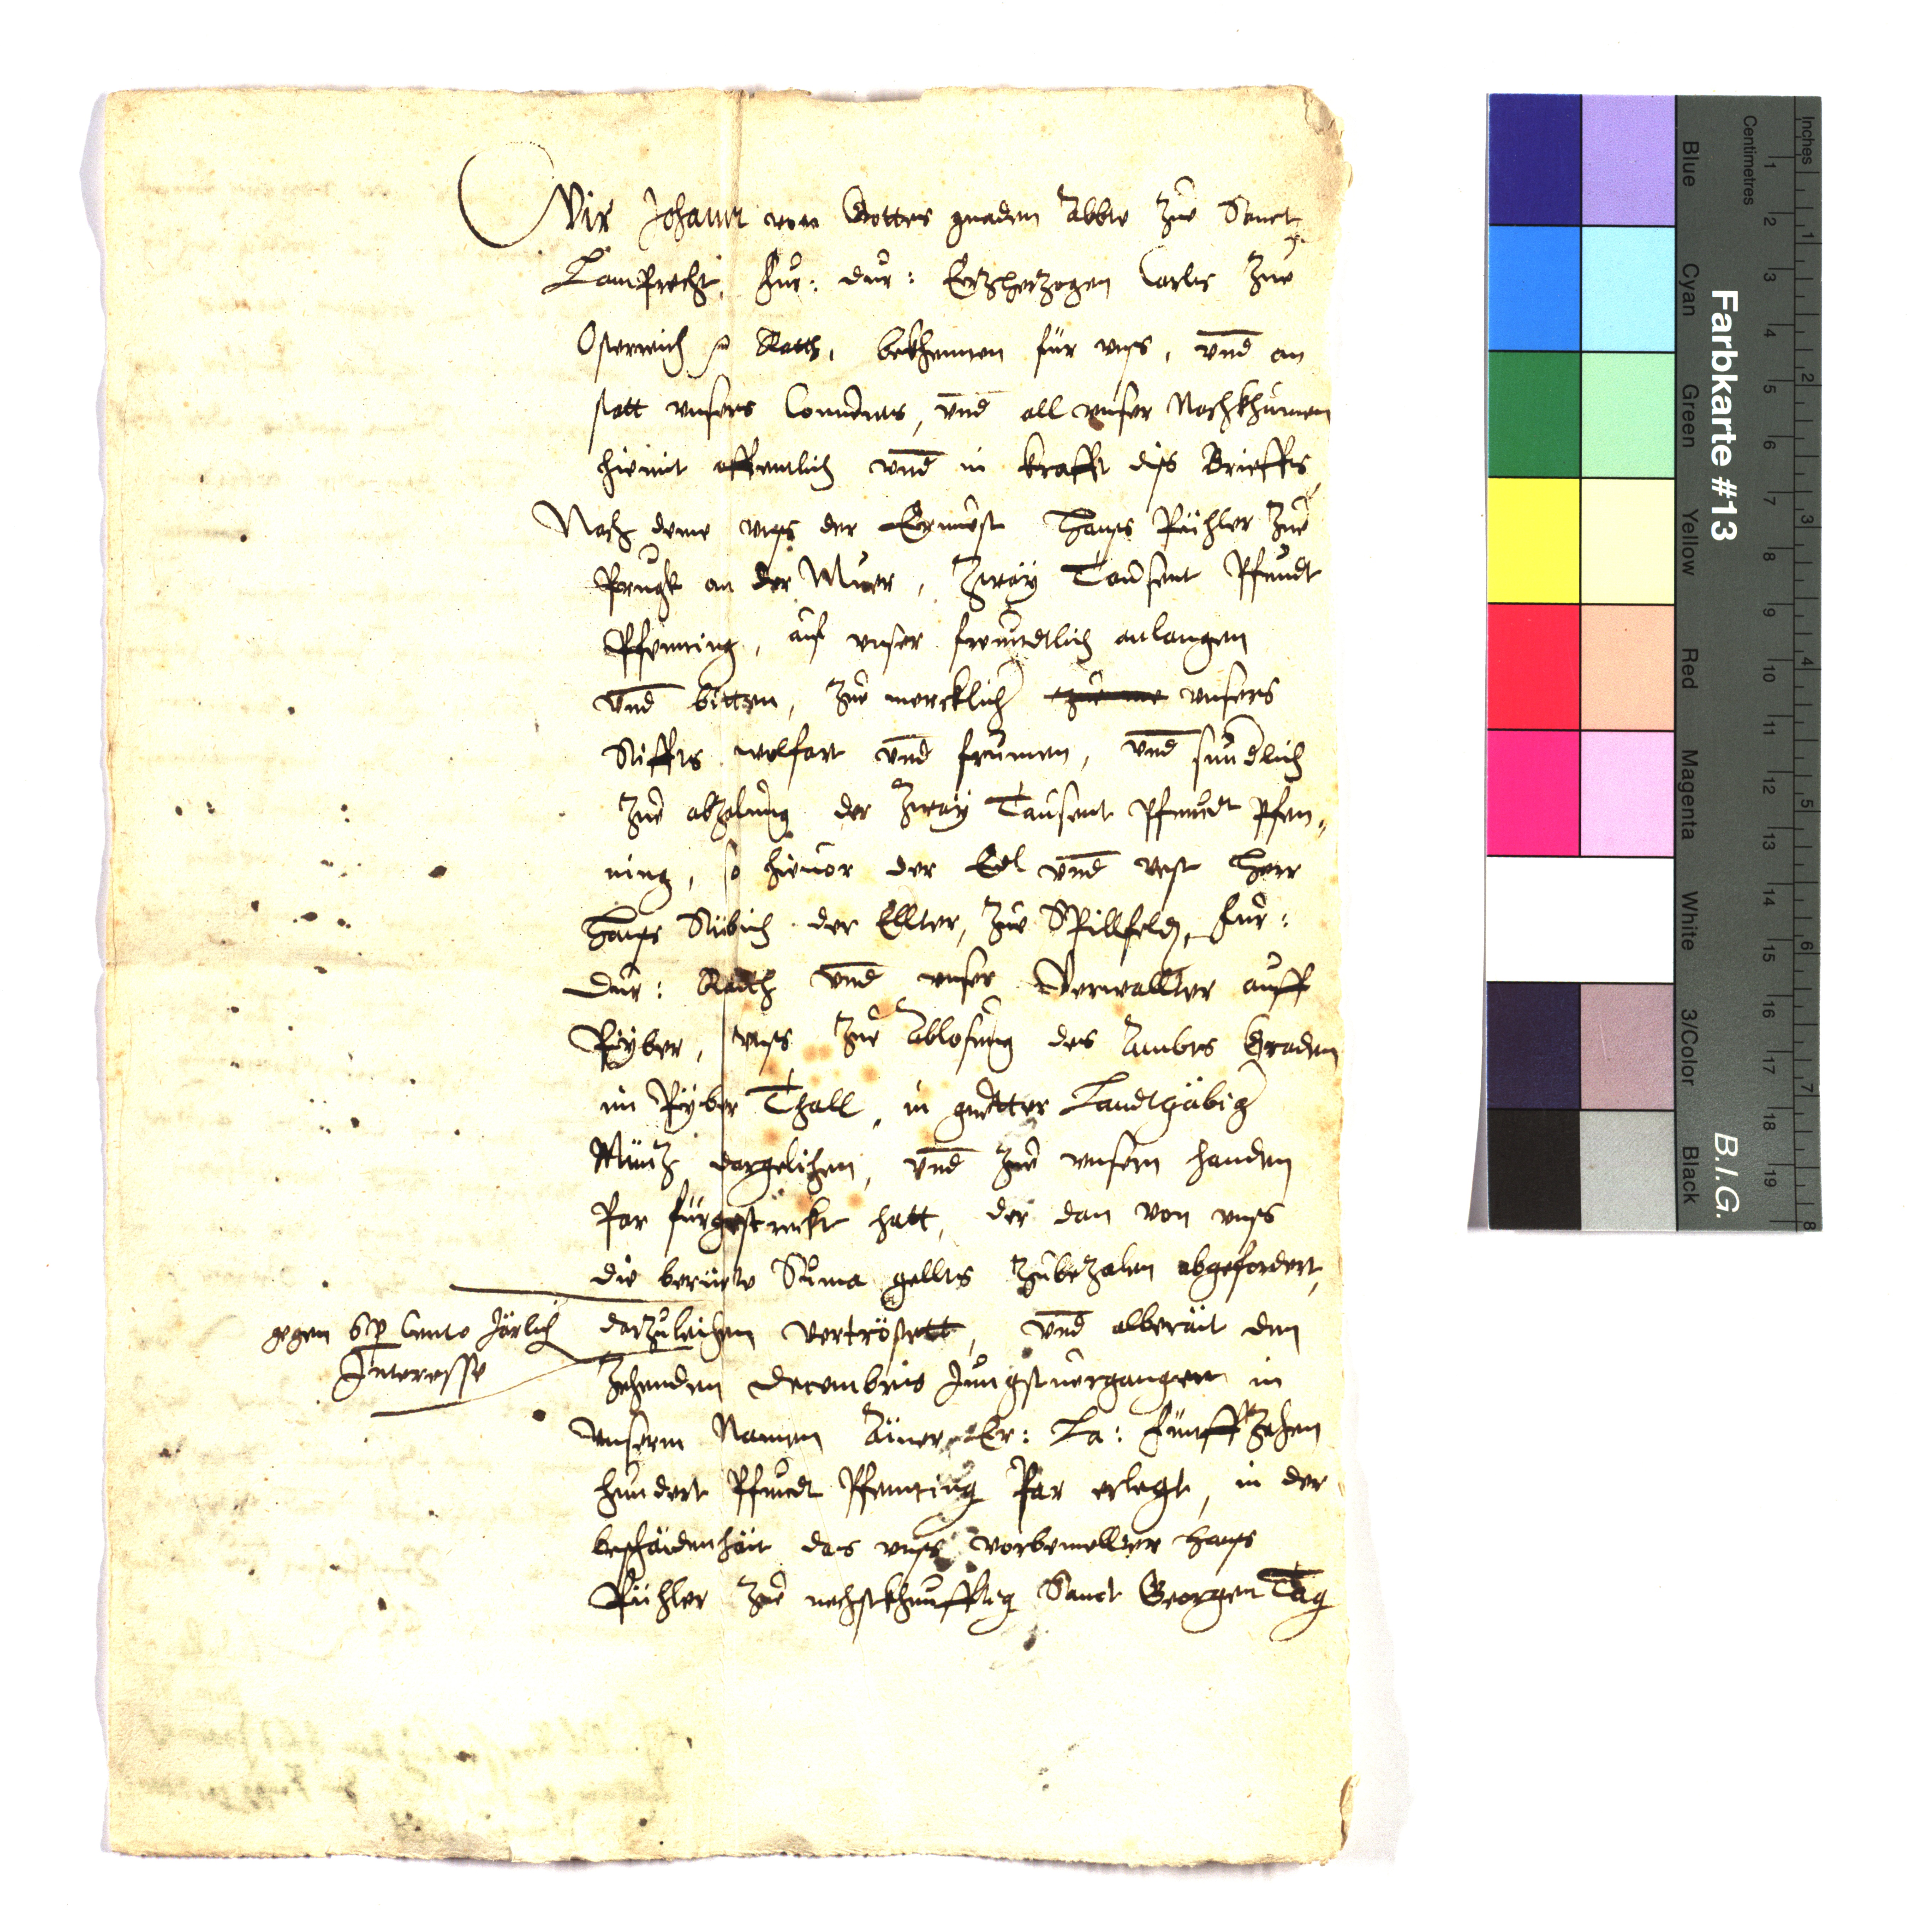 Wir Johann von Gottes gnaden Abbte Zue Sanct
Lamprecht, Fur: dur: Erzherzogen Carls Zue
Osterreich Rath, bekhennen für vnss, vnd an
statt vnsers Conuents, vnd all vnser Nachkhumen
hiemit offentlich vnd in krafft diss Brieffs,
Nach deme vnss der Ernuest Hanss Pühler Zue
Prugk an der Muer, Zway Tausent Pfundt
Pfenning, auf vnser freundtlich anlangen
vnd bitten, Zue mercklich vnsers
Stiffts wolfart vnd frumen, vnd sunderlich
Zue abzalung der Zway Tausent Pfundt Pfen,
ning, so hieuor der Edl vnd vest Herr
Hanss Stübich der Ellter, Zue Spillfeld, Fur:
Dur: Rath vnd vnser Verwallter auff
Pyber, vnss Zue Ablosung des Ambts Graden
im Pyber Thall, in guetter Landtgäbig
Münz dargelihen, vnd Zue vnsern handen
Par fürgestreckt hatt, der dan von vnss
die beruerte Suma gellts Zubezalen abgefordert,
gegen 6 p Cento Järlich
Interesse
darzuleihen vertröstett, vnd alberait den
Zehenden Decembris Jungstuergangen in
vnserm Namen Ainer Er: La: Fünffzehen
hundert Pfundt Pfenning Par erlegt, in der
beschaidenhait das vnss vorbemellter Hanss
Pühler Zue nechstkhunfftig Sanct Georgen Tag